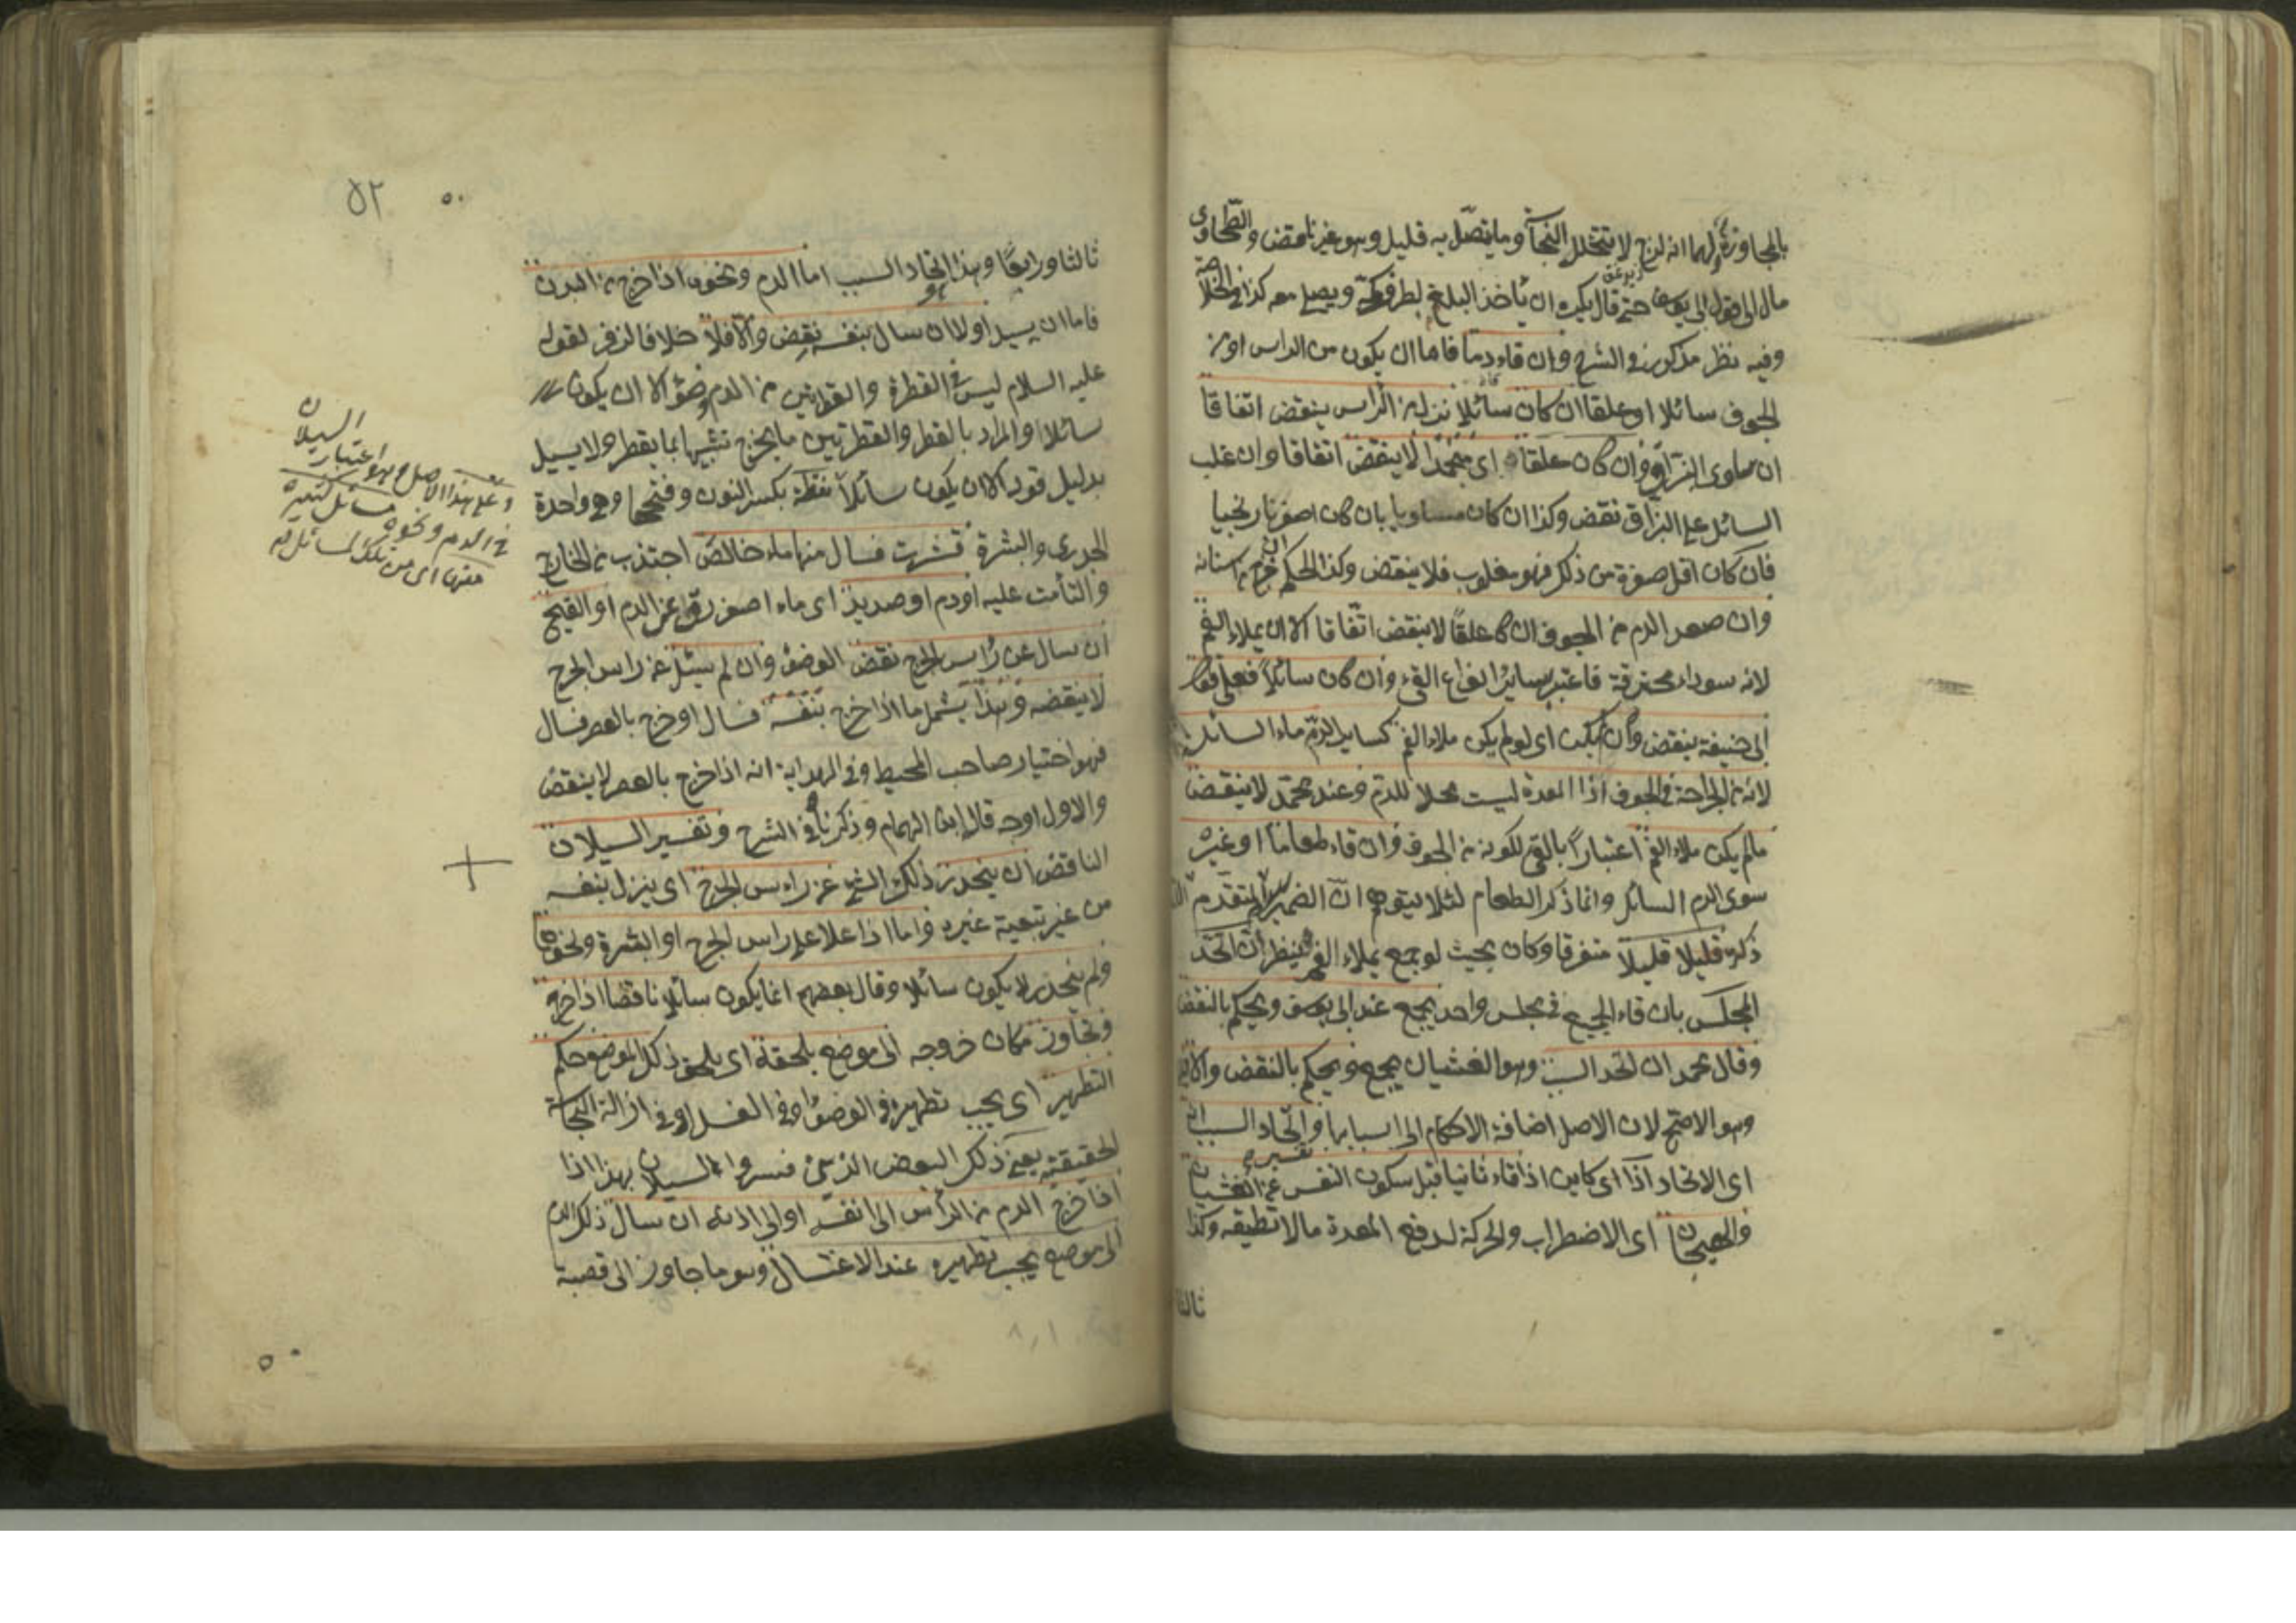 بالمجاورة ولهما انه لزج لا تتخلل النجاسة وما يتصل به قليل وهو غير ناقض والطحاوي
مال الى قول ابى يوسف حتى قال يكره ان يأخذ البلغم بطرف كمه ويصلى معه كذا فى الخلاصة
وفيه نظر مذكور فى الشرح وان قاء دما فاما ان يكون من الراس او من
الجوف سائلا او علقا ان كان سائلا نزل من الراس ينقض اتفاقا
ان ساوى البزاق وان كان علقا اى منجمدا لا ينقض اتفاقا وان غلب
السائل على البزاق نقض وكذا ان كان مساويا بان كان اصفر نارنجيا
فان كان اقل صفرة من ذكر فهو مغلوب فلا ينقض وكذا الحكم ان خرج من اسنانه
وان صعد الدم من الجوف ان كان علقا لا ينقض اتفاقا الا ان يملاء الفم
لانه سوداء محترقة فاعتبر بسائر انواع القيء وان كان سائلا فعلى قول
ابى حنيفة ينقض وان لم يكن اى لو لم يكن ملاء الفم كسايل الدماء السائلة
لانه من الجراحة فى الجوف اذا المعدة ليست محلا للدم وعند محمد لا ينقض
ما لم يكن ملاء الفم اعتبارا بالقيء لكونه من الجوف وان قاء طعاما او غيره
سوى الدم السائل وانما ذكر الطعام لئلا يتوهم ان الضمير للمتقدم
ذكره قليلا قليلا متفرقا وكان بحيث لو جمع يملاء الفم ينظر ان اتحد
المجلس بان قاء الجميع فى مجلس واحد يجمع عند ابى يوسف ويحكم بالنقض
وقال محمد ان اتحد السبب وهو الغثيان يجمع ويحكم بالنقض والا فلا
وهو الاصح لان الاصل اضافة الاحكام الى اسبابها واتحاد السبب
اى الاتحاد اذا اى كاين اذا قاء ثانيا قبل سكون النفس عن الغثيان
والهيجان اى الاضطراب والحركة لدفع المعدة ما لا تطيقه وكذا
ثالثا
٥٢
٥٠
ثالثا ورابعا وهذا هو اتحاد السبب اما الدم ونحوه اذا خرج من البدن
فاما ان يسيل اولا ان سال بنفسه نقض والا فلا خلافا لزفر لقوله
عليه السلام ليس فى القطرة والقطرتين من الدم وضؤ الا ان يكون
سائلا والمراد بالقطرة والقطرتين ما يخرج تشبيها بما يقطر ولا يسيل
بدليل قوله الا ان يكون سائلا نفطة بكسر النون وفتحها وهى واحدة
الجدرى والبشرة قشرت فسال منها ماء خالص اجتذب من الخارج
والتأمت عليه او دم او صديد اى ماء اصفر رق عن الدم او القيح
ان سال عن رأس الجرح نقض الوضؤ وان لم يسل عن راس الجرح
لا ينقضه وهذا يشمل ما اذا خرج بنفسه فسال او خرج بالعصر فسال
فهو اختيار صاحب المحيط وفى الهداية انه اذا خرج بالعصر لا ينقض
والاول اوجه قاله ابن الهمام وذكرناه فى الشرح وتفسير السيلان
الناقض ان ينحدر ذلك الشئ عن راس الجرح اى ينزل بنفسه
من غير تبعية غيره واما اذا علا على راس الجرح او البشرة ونحوها
ولم ينحدر لا يكون سائلا وقال بعضهم انما يكون سائلا ناقضا اذا خرج
وتجاوز مكان خروجه الى موضع يلحقه اى يلحق ذلك الموضع حكم
التطهير اى يجب تطهيره فى الوضؤ او فى الغسل او فى ازالة النجاسة
الحقيقية يعنى ذلك البعض الذين فسروا السيلان بهذا اذا
اذا خرج الدم من الرأس الى انفه او الى اذنه ان سال ذلك الدم
الى موضع يجب تطهيره عند الاغتسال وهو ما جاوز الى قصبة
وعلى هذا الاصل وهو اعتبار السيلان
فى الدم ونحوه مسائل كثيرة
منها اى من تلك المسائل